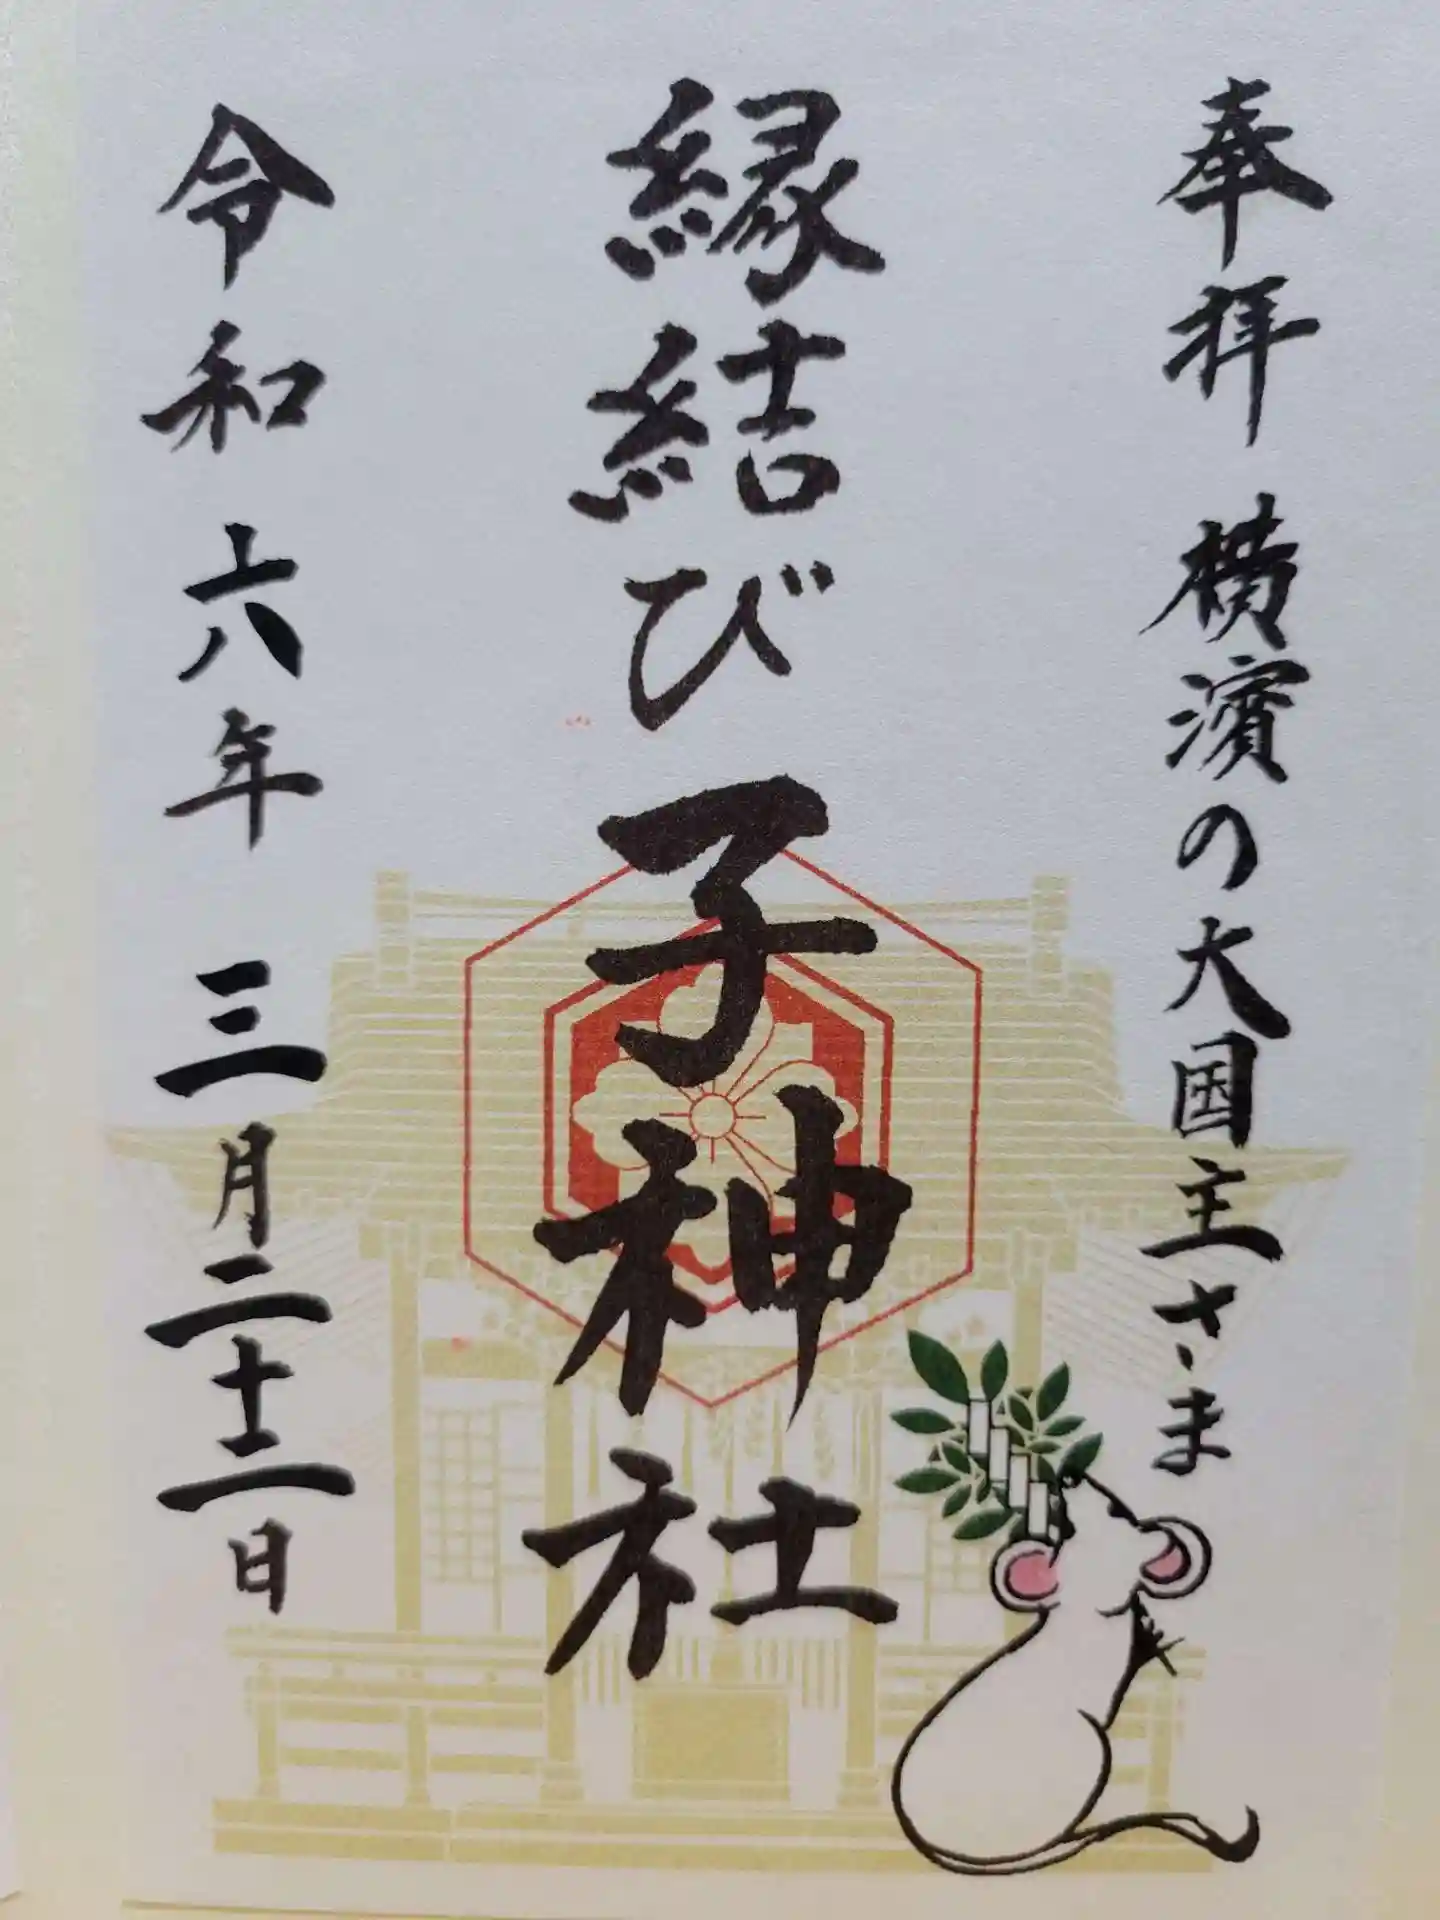 奉拝 横濱の大国主さま
縁結び 子神社
令和六年 三月二十二日